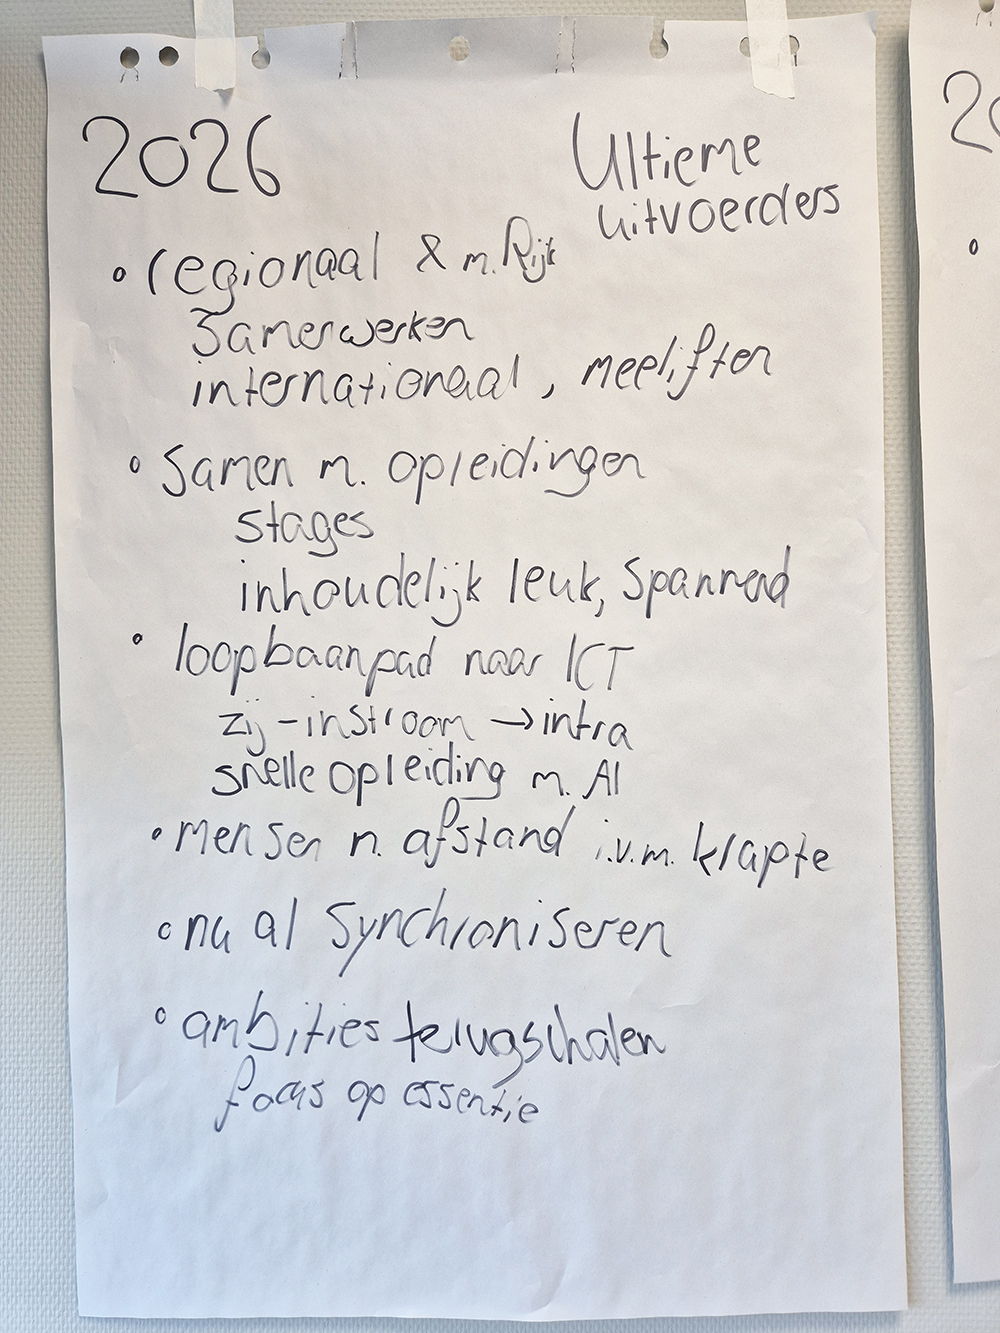 2026
Ultieme
uitvoerders
regionaal & m. Rijk
Samenwerken
internationaal, meeliften
Samen m. opleidingen
stages
inhoudelijk leuk, spannend
loopbaanpad naar ICT
zij-instroom → intra
snelle opleiding m. AI
mensen n. afstand i.v.m. krapte
nu al synchroniseren
ambities terugschalen
focus op essentie
20